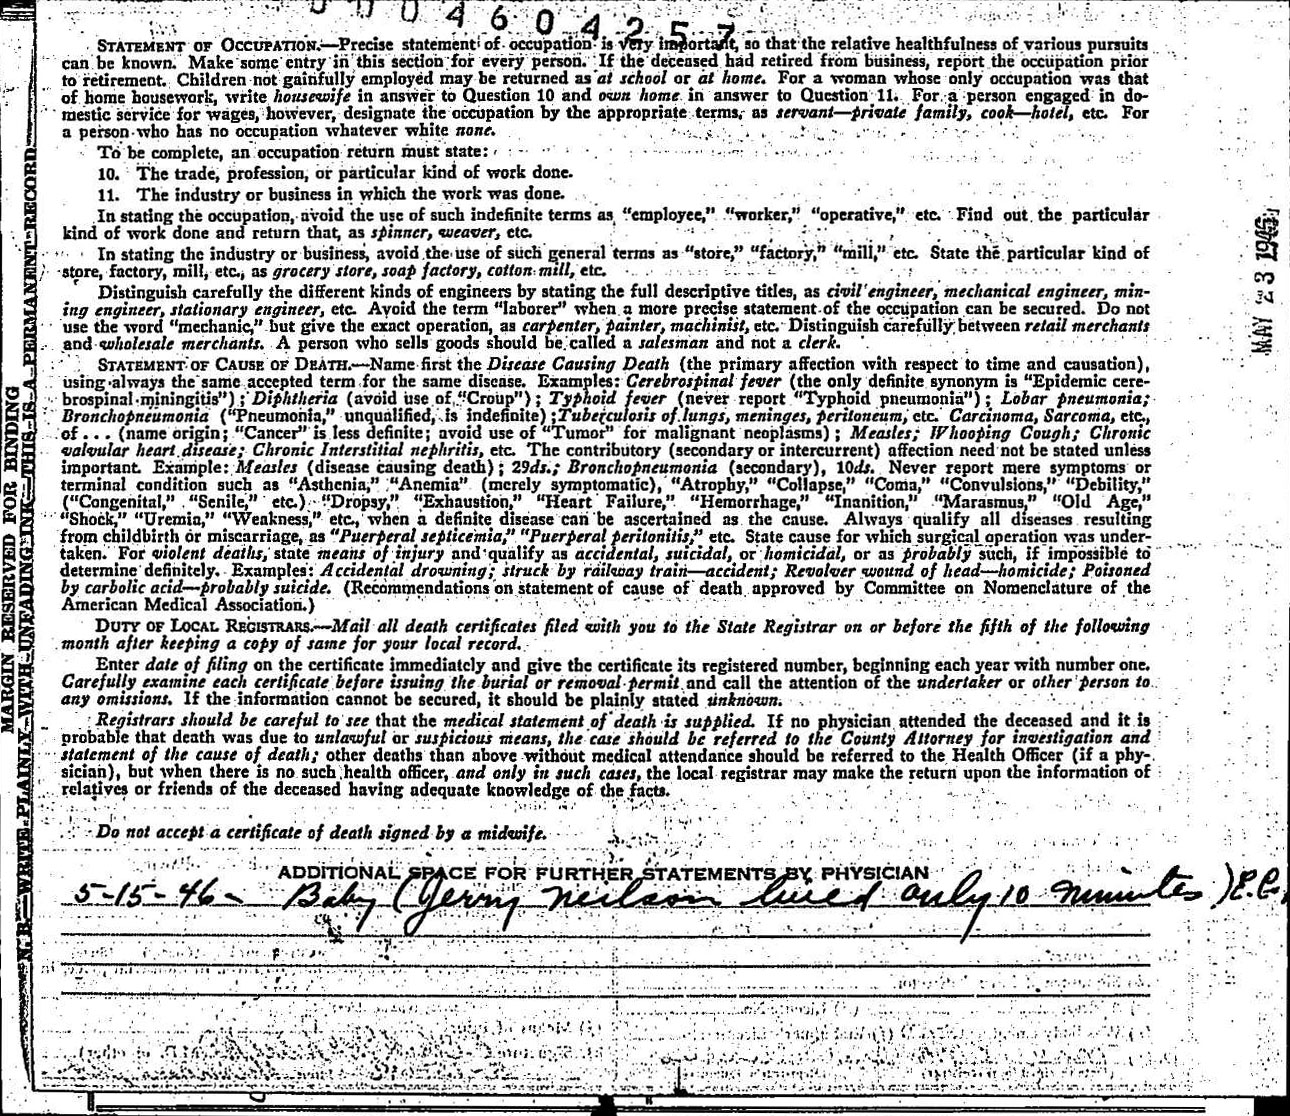 0004604257
STATEMENT OF OCCUPATION.—Precise statement of occupation is very important, so that the relative healthfulness of various pursuits
can be known. Make some entry in this section for every person. If the deceased had retired from business, report the occupation prior
to retirement. Children not gainfully employed may be returned as at school or at home. For a woman whose only occupation was that
of home housework, write housewife in answer to Question 10 and own home in answer to Question 11. For a person engaged in do-
mestic service for wages, however, designate the occupation by the appropriate terms, as servant—private family, cook—hotel, etc. For
a person who has no occupation whatever white none.
To be complete, an occupation return must state:
10. The trade, profession, or particular kind of work done.
11. The industry or business in which the work was done.
In stating the occupation, avoid the use of such indefinite terms as “employee,” “worker,” “operative,” etc. Find out the particular
kind of work done and return that, as spinner, weaver, etc.
In stating the industry or business, avoid the use of such general terms as “store,” “factory,” “mill,” etc. State the particular kind of
store, factory, mill, etc., as grocery store, soap factory, cotton mill, etc.
Distinguish carefully the different kinds of engineers by stating the full descriptive titles, as civil engineer, mechanical engineer, min-
ing engineer, stationary engineer, etc. Avoid the term “laborer” when a more precise statement of the occupation can be secured. Do not
use the word “mechanic,” but give the exact operation, as carpenter, painter, machinist, etc. Distinguish carefully between retail merchants
and wholesale merchants. A person who sells goods should be called a salesman and not a clerk.
STATEMENT OF CAUSE OF DEATH.—Name first the Disease Causing Death (the primary affection with respect to time and causation),
using always the same accepted term for the same disease. Examples: Cerebrospinal fever (the only definite synonym is “Epidemic cere-
brospinal miningitis”); Diphtheria (avoid use of “Croup”); Typhoid fever (never report “Typhoid pneumonia”); Lobar pneumonia;
Bronchopneumonia (“Pneumonia,” unqualified, is indefinite); Tuberculosis of lungs, meninges, peritoneum, etc. Carcinoma, Sarcoma, etc.,
of . . . (name origin; “Cancer” is less definite; avoid use of “Tumor” for malignant neoplasms); Measles; Whooping Cough; Chronic
valvular heart disease; Chronic Interstitial nephritis, etc. The contributory (secondary or intercurrent) affection need not be stated unless
important. Example: Measles (disease causing death); 29ds.; Bronchopneumonia (secondary), 10ds. Never report mere symptoms or
terminal condition such as “Asthenia,” “Anemia” (merely symptomatic), “Atrophy,” “Collapse,” “Coma,” “Convulsions,” “Debility,”
(“Congenital,” “Senile,” etc.) “Dropsy,” “Exhaustion,” “Heart Failure,” “Hemorrhage,” “Inanition,” “Marasmus,” “Old Age,”
“Shock,” “Uremia,” “Weakness,” etc., when a definite disease can be ascertained as the cause. Always qualify all diseases resulting
from childbirth or miscarriage, as “Puerperal septicemia,” “Puerperal peritonitis,” etc. State cause for which surgical operation was under-
taken. For violent deaths, state means of injury and qualify as accidental, suicidal, or homicidal, or as probably such, if impossible to
determine definitely. Examples: Accidental drowning; struck by railway train—accident; Revolver wound of head—homicide; Poisoned
by carbolic acid—probably suicide. (Recommendations on statement of cause of death approved by Committee on Nomenclature of the
American Medical Association.)
DUTY OF LOCAL REGISTRARS.—Mail all death certificates filed with you to the State Registrar on or before the fifth of the following
month after keeping a copy of same for your local record.
Enter date of filing on the certificate immediately and give the certificate its registered number, beginning each year with number one.
Carefully examine each certificate before issuing the burial or removal permit and call the attention of the undertaker or other person to
any omissions. If the information cannot be secured, it should be plainly stated unknown.
Registrars should be careful to see that the medical statement of death is supplied. If no physician attended the deceased and it is
probable that death was due to unlawful or suspicious means, the case should be referred to the County Attorney for investigation and
statement of the cause of death; other deaths than above without medical attendance should be referred to the Health Officer (if a phy-
sician), but when there is no such health officer, and only in such cases, the local registrar may make the return upon the information of
relatives or friends of the deceased having adequate knowledge of the facts.
Do not accept a certificate of death signed by a midwife.
ADDITIONAL SPACE FOR FURTHER STATEMENTS BY PHYSICIAN
5-15-46- Baby (Jerry Neilson lived only 10 minutes) E.C.
MARGIN RESERVED FOR BINDING
N. B.—WRITE PLAINLY—WITH UNFADING INK—THIS IS A PERMANENT RECORD
MAY 23 1946